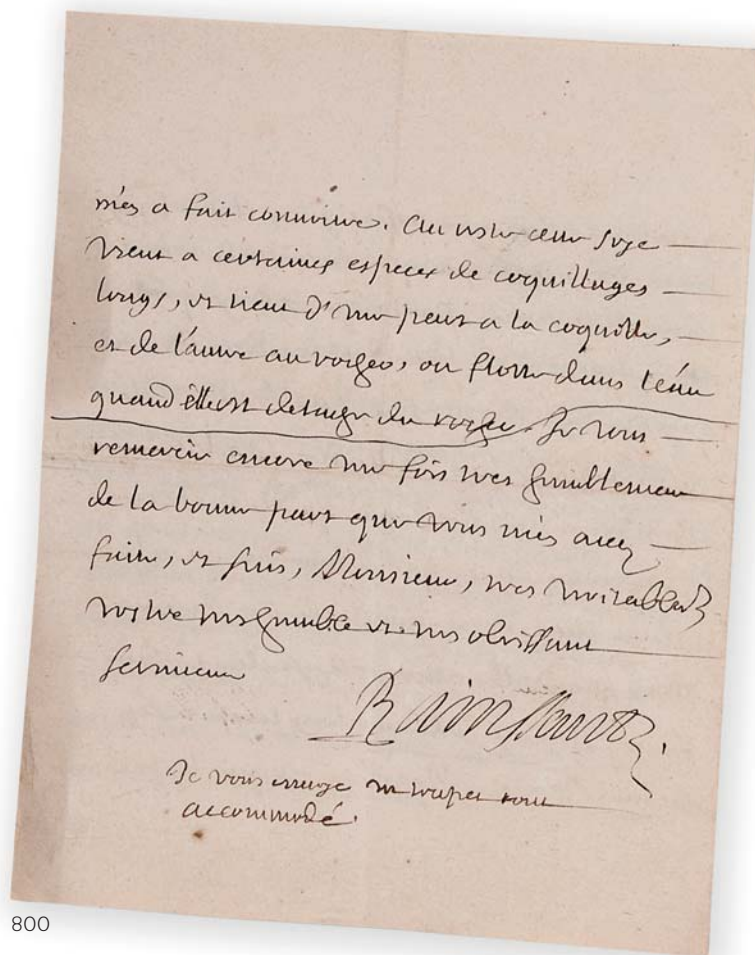 m'en a fait connoitre. Au reste cette soye
vient a certaines especes de coquillages
longs, et tient d'une part a la coquille,
et de l'autre au rocher, ou flotte dans l'eau
quand elle est detachée du rocher. Je vous
remercie encore une fois tres humblement
de la bonne part que vous m'en avez
faite, et suis, Monsieur, tres veritablement
votre tres humble et tres obeissant
serviteur
Rainssant
Je vous envoye
accommodé.
800